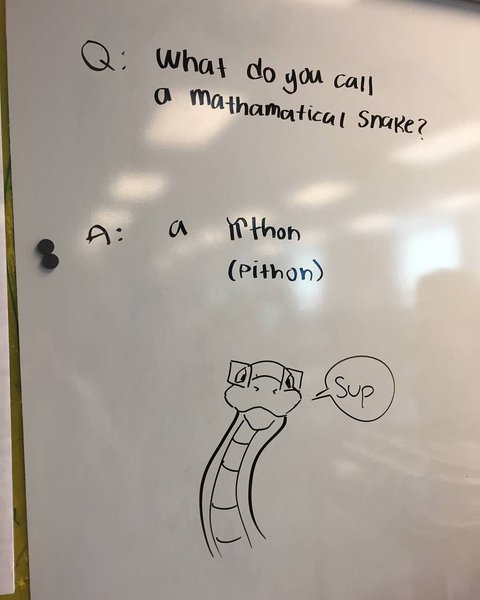 Q: What do you call
a mathamatical snake?
A: a πthon
(pithon)
Sup